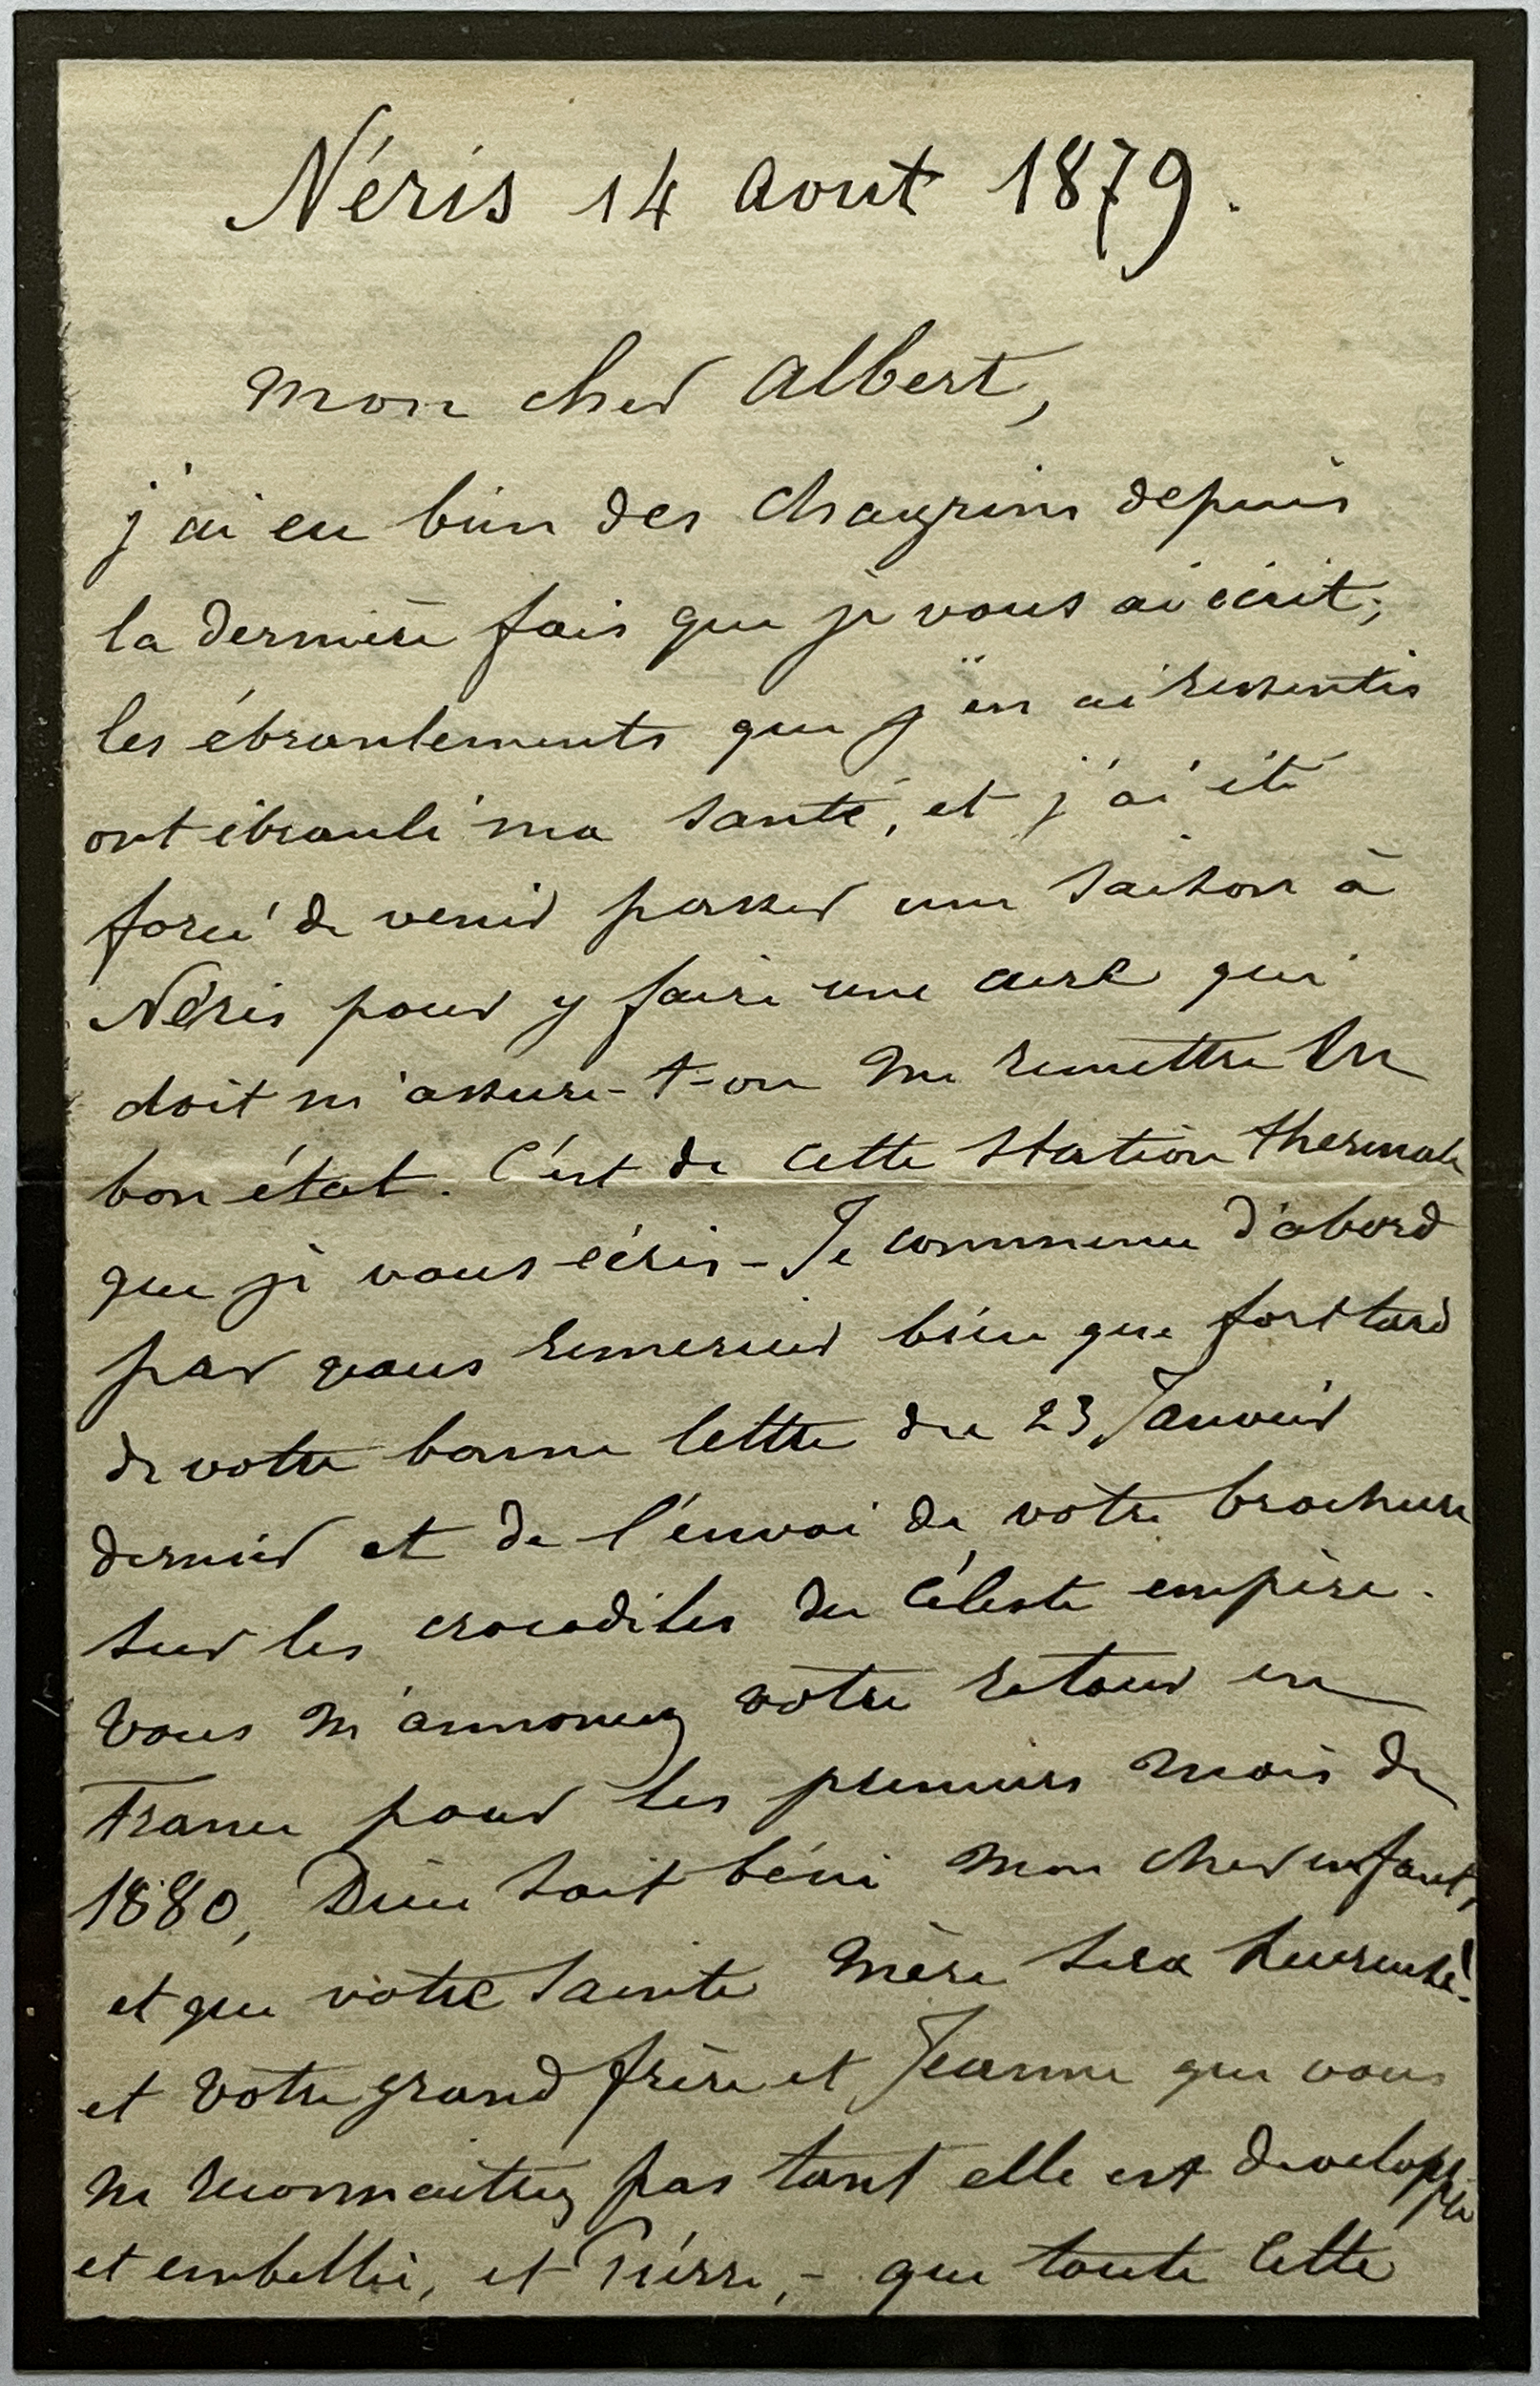 Néris 14 Aout 1879.
Mon cher Albert,
j'ai eu bien des chagrins depuis
la dernière fois que je vous ai écrit;
les ébranlements que j'en ai ressentis
ont ébranlé ma santé, et j'ai été
forcé de venir passer une saison à
Néris pour y faire une cure qui
doit m'assure-t-on me remettre en
bon état. C'est de cette station thermale
que je vous écris - Je commence d'abord
par vous remercier bien que fort tard
de votre bonne lettre du 23 Janvier
dernier et de l'envoi de votre brochure
sur les crocodiles du Céleste empire.
Vous m'annoncez votre retour en
France pour les premiers mois de
1880, Dieu soit béni mon cher enfant,
et que votre sainte mère sera heureuse!
et votre grand frère et Jeanne que vous
ne reconnaitrez pas tant elle est developpée
et embellie, et Pierre, - que toute cette